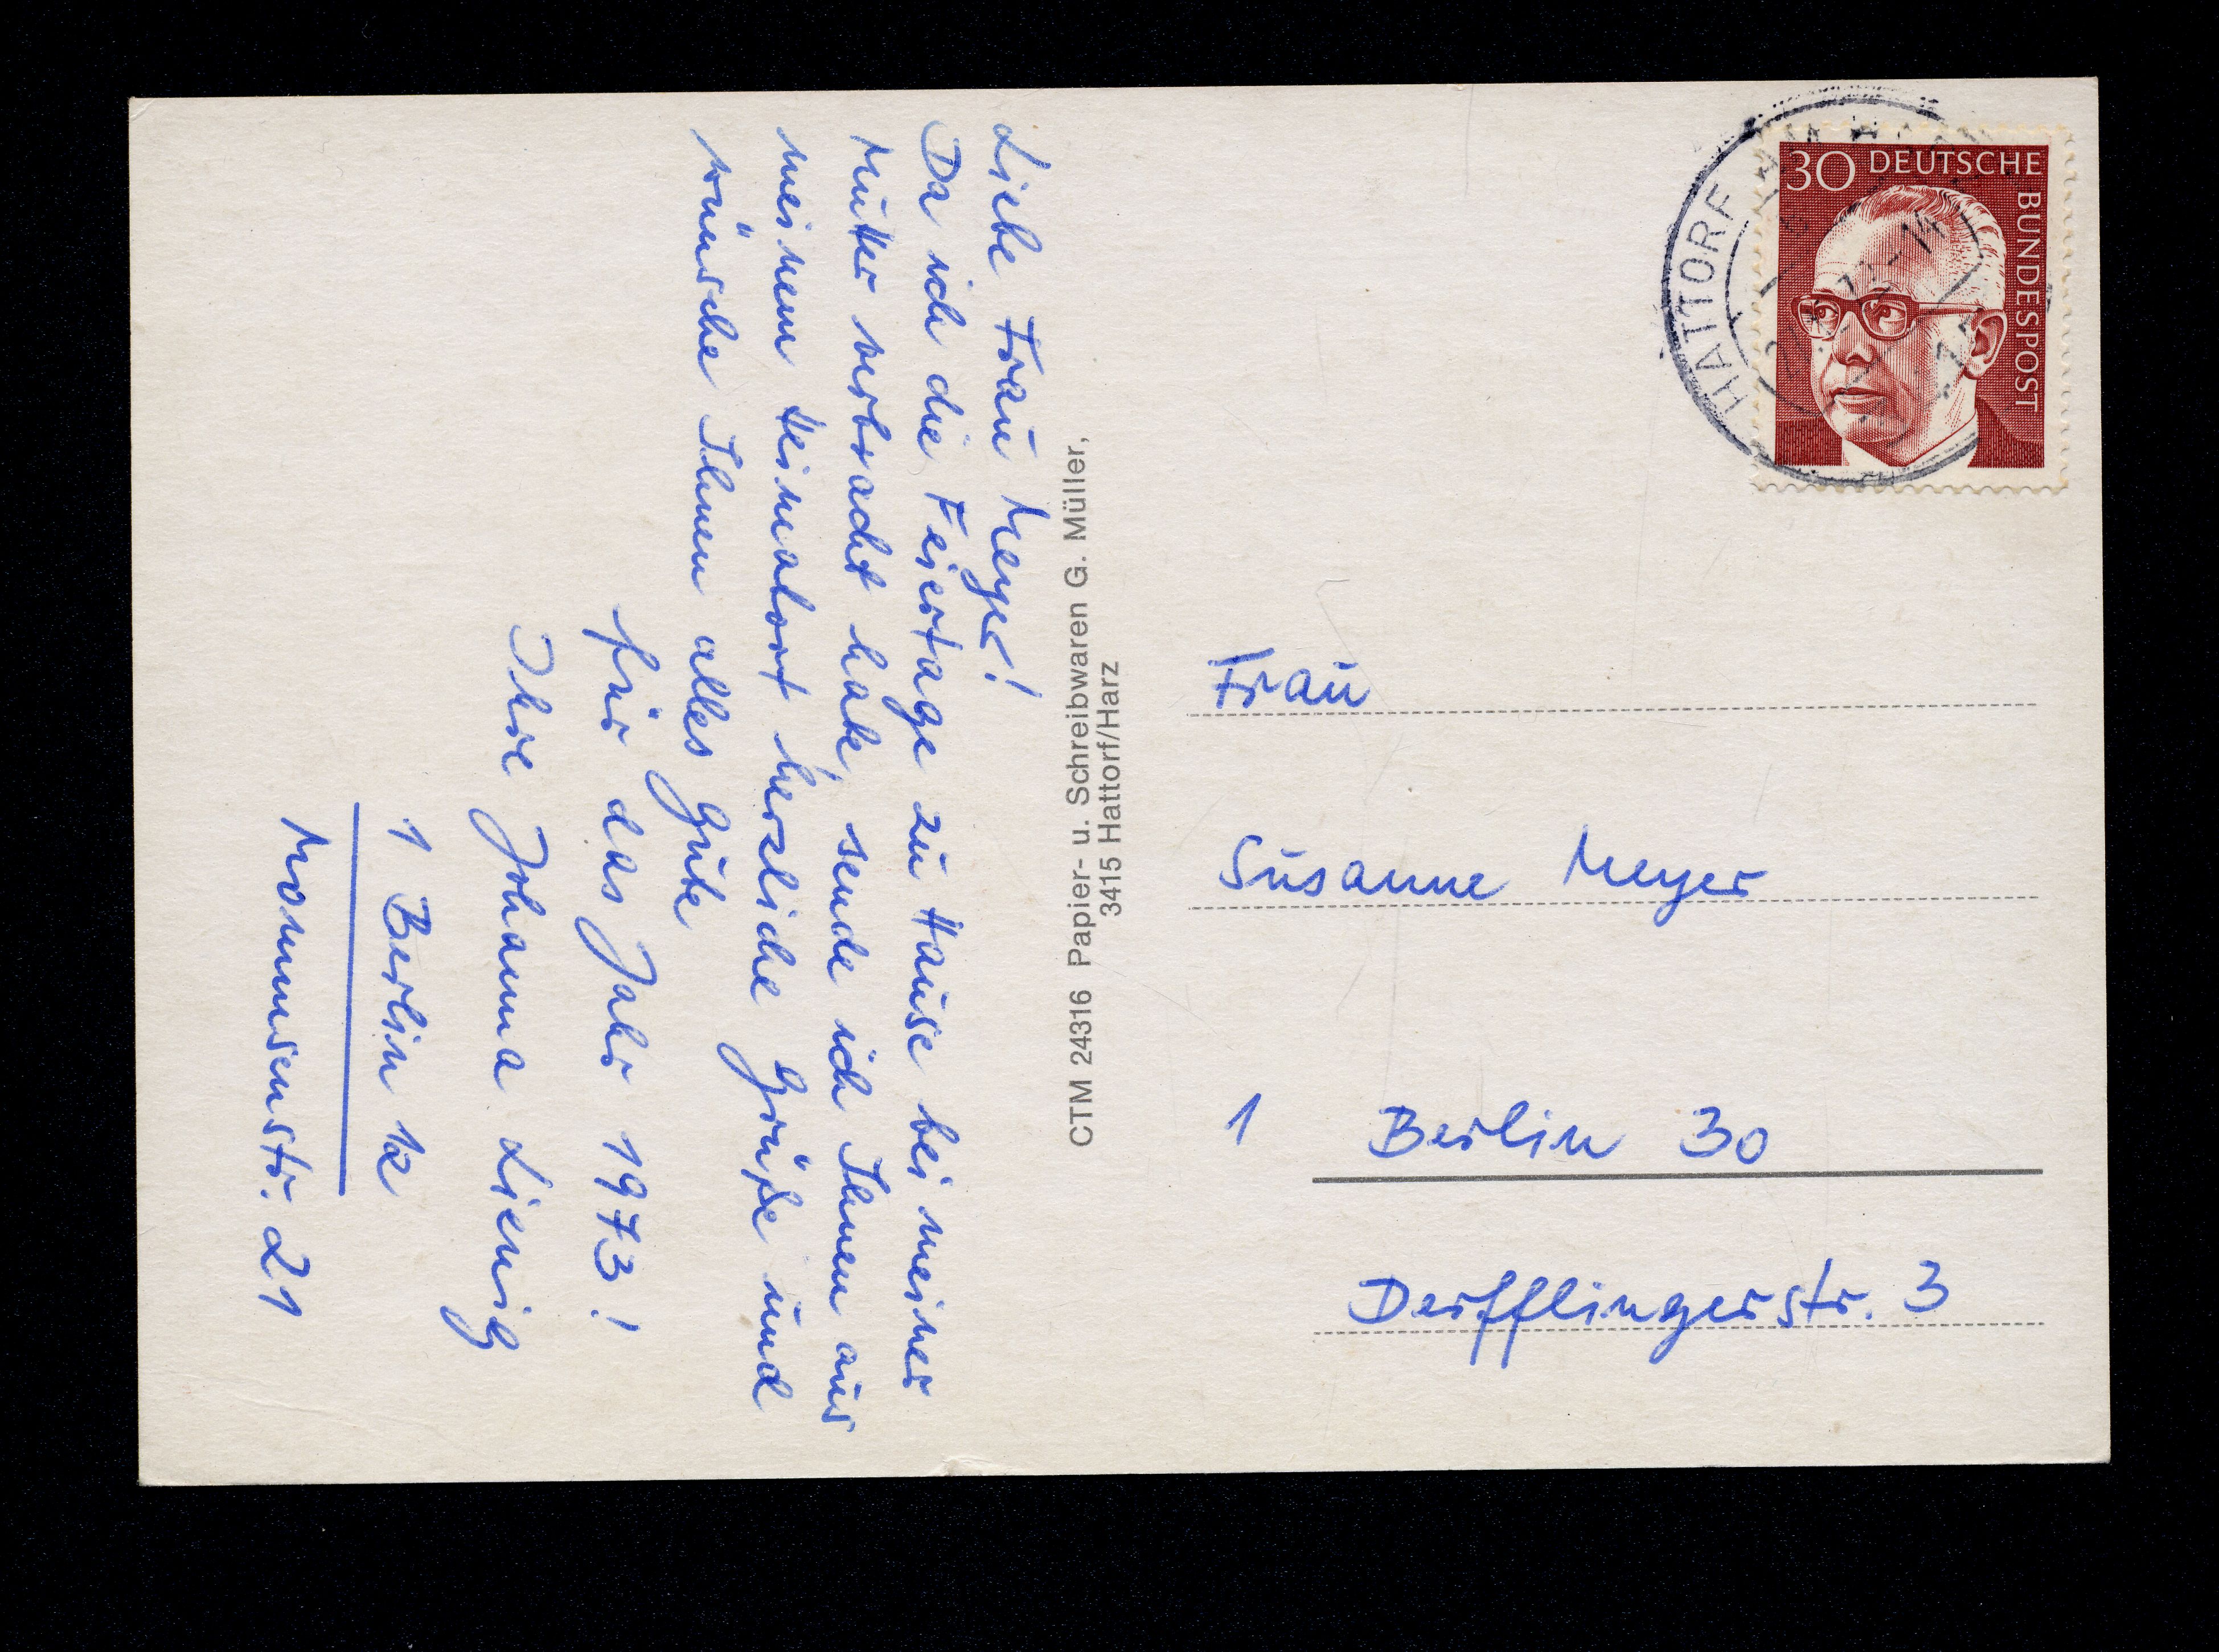 Liebe Frau Meyer!
Da ich die Feiertage zu Hause bei meiner
Mutter verbracht habe, sende ich Ihnen aus
meinem Heimatort herzliche Grüße und
wünsche Ihnen alles Gute
für das Jahr 1973!
Ihre Johanna Lienig
1 Berlin 12
Mommsenstr. 21
CTM 24316 Papier- u. Schreibwaren G. Müller,
3415 Hattorf/Harz
30 DEUTSCHE
BUNDESPOST
HATTORF AM
Frau
Susanne Meyer
1 Berlin 30
Derfflingerstr. 3